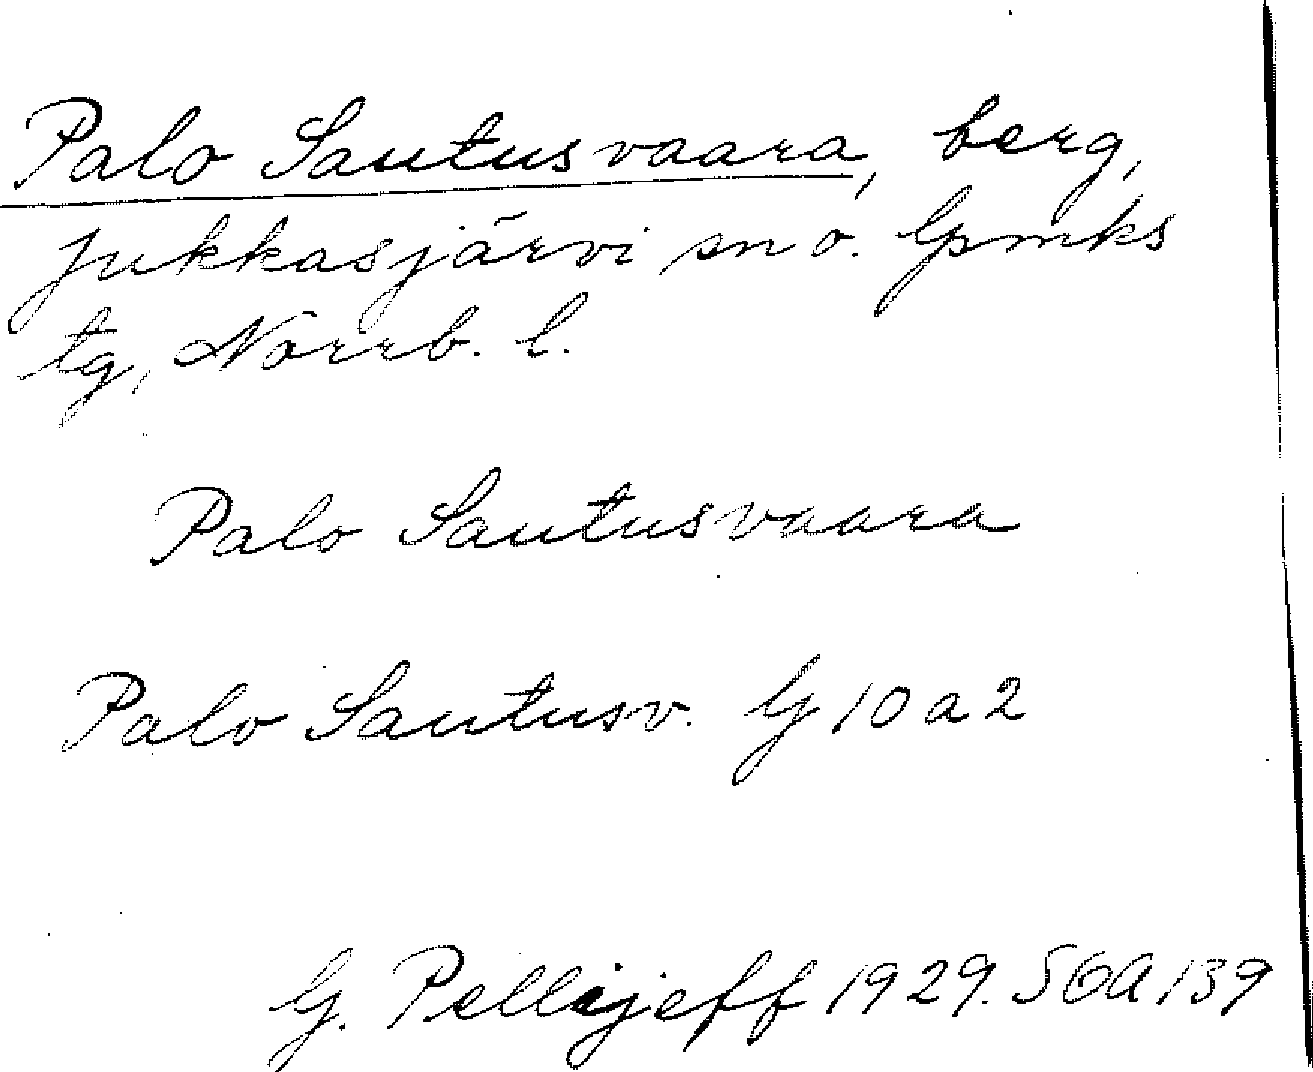 Palo Sautusvaara, berg,
Jukkasjärvi sn o. Gpmks
tg, Norrb. l.
Palo Sautusvaara
Palo Sautusv. G 10 a 2
G. Pellijeff 1929. SOA 139